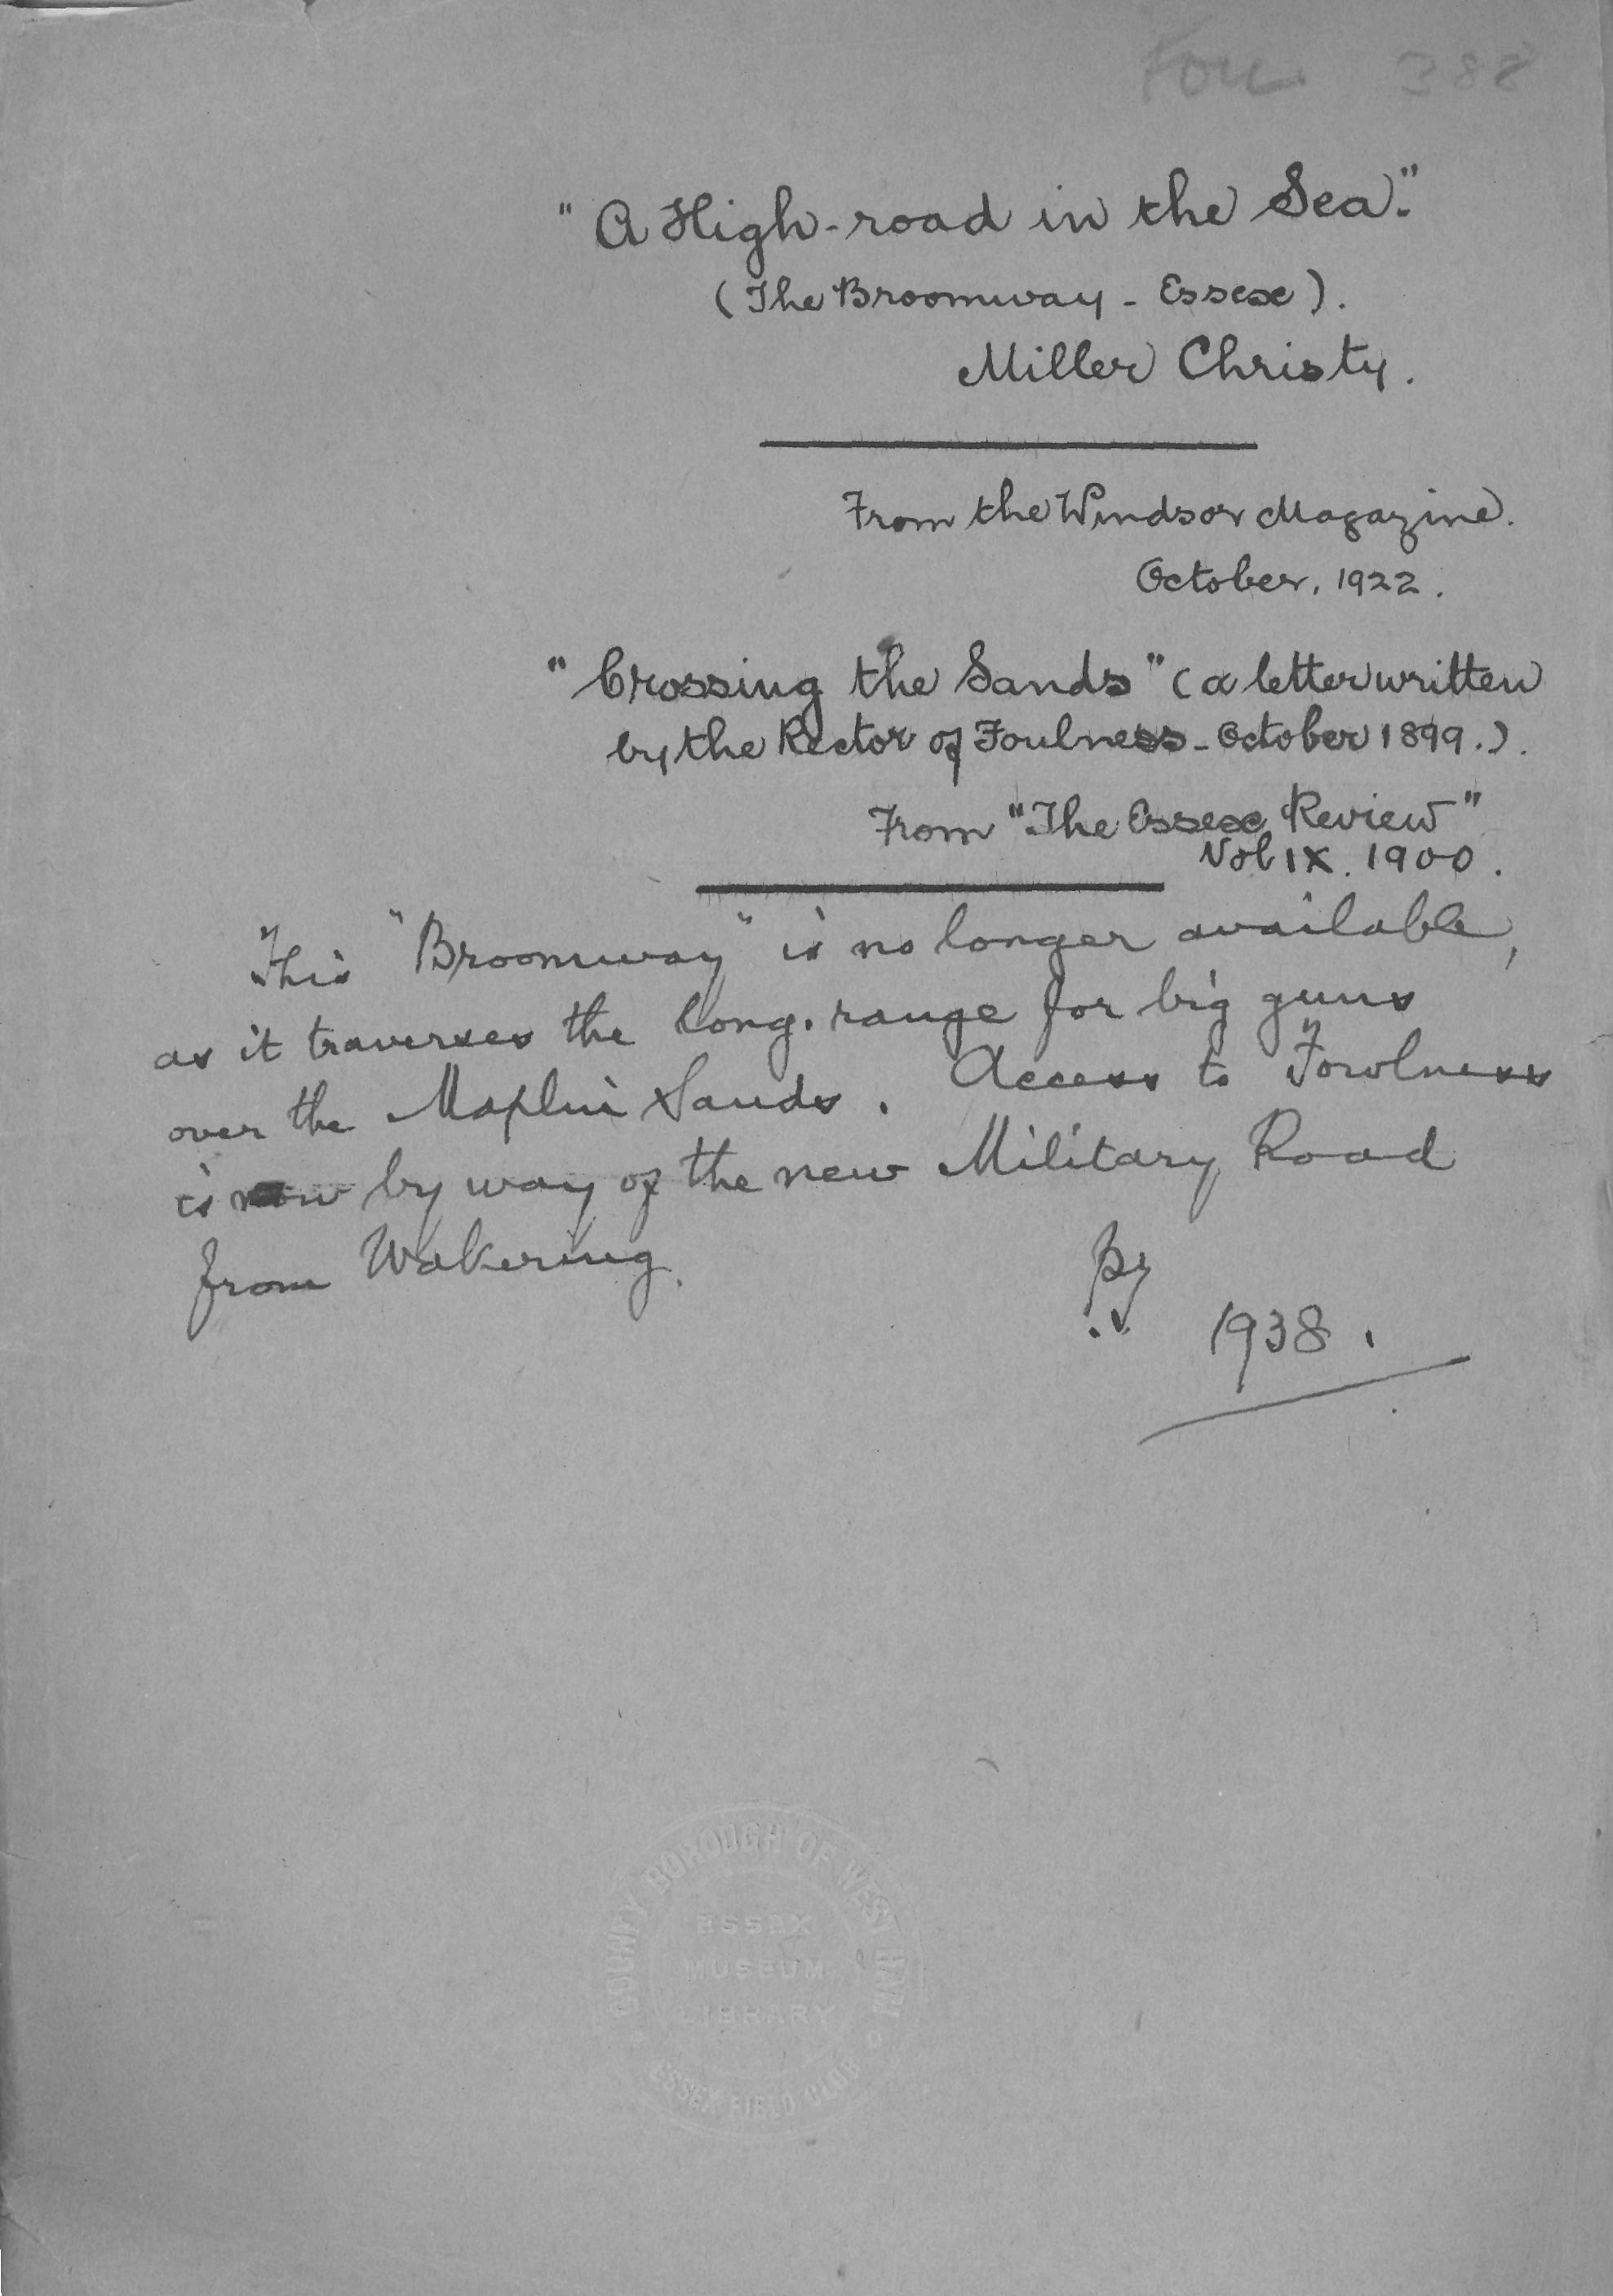 Fou 388
"A High-road in the Sea."
(The Broomway - Essex).
Miller Christy.
From the Windsor Magazine.
October, 1922.
"Crossing the Sands" (a letter written
by the Rector of Foulness - October 1899.).
From "The Essex Review"
Vol IX. 1900.
This "Broomway" is no longer available,
as it traverses the long. range for big guns
over the Maplin Sands. Access to Fowlness
is now by way of the new Military Road
from Wakering.
1938.
COUNTY BOROUGH OF WEST HAM
ESSEX
MUSEUM
LIBRARY
ESSEX FIELD CLUB